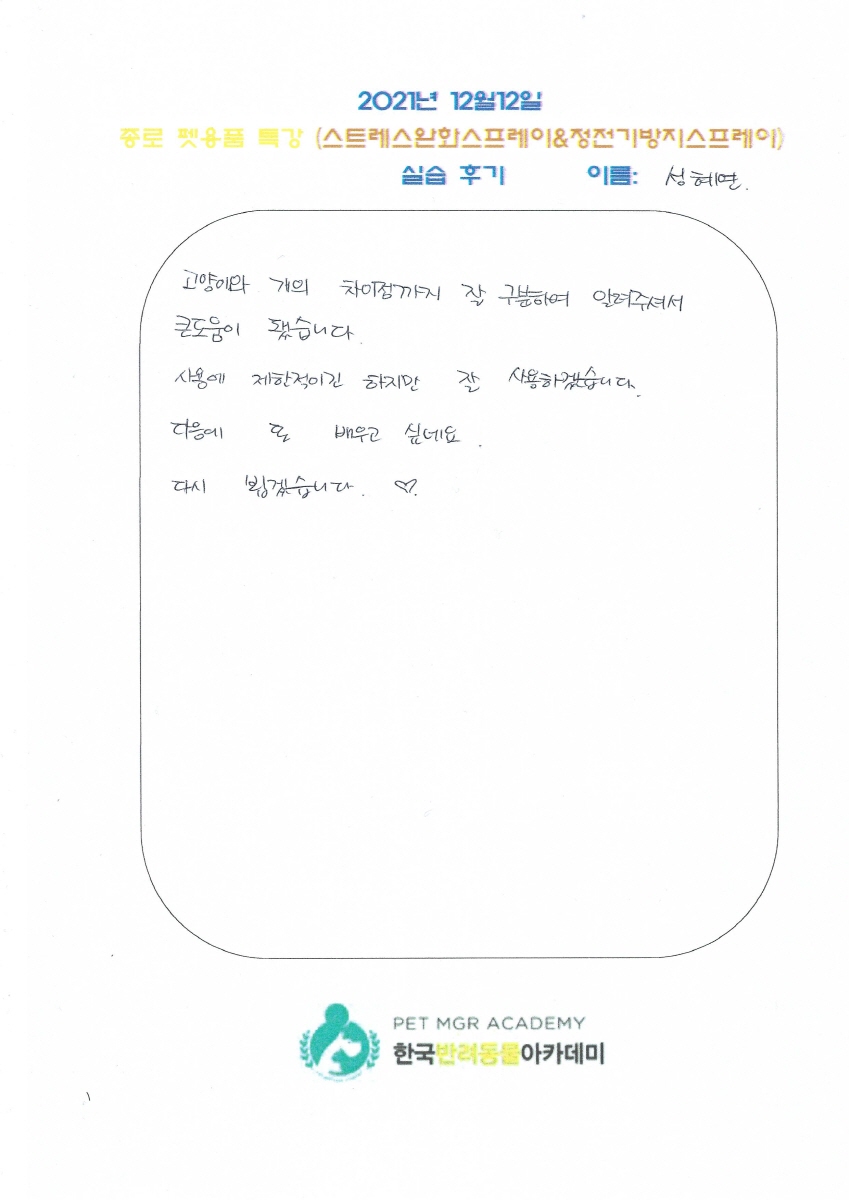 2021년 12월12일
종로 펫용품 특강 (스트레스완화스프레이&정전기방지스프레이)
실습 후기 이름: 성혜연.
고양이와 개의 차이점까지 잘 구분하여 알려주셔서
큰도움이 됐습니다.
사용에 제한적이긴 하지만 잘 사용하겠습니다.
다음에 또 배우고 싶네요.
다시 뵙겠습니다. ♡.
PET MGR ACADEMY
한국반려동물아카데미